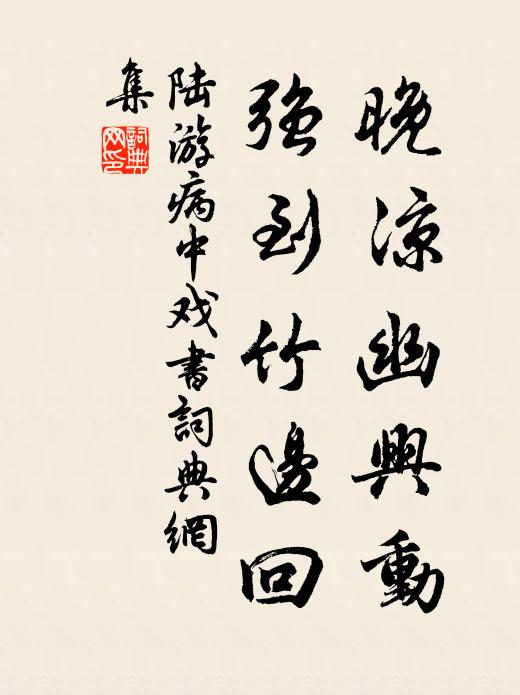 晚凉幽興動
強到竹邊回
陆游病中戏書詞典網
集
詞典網印